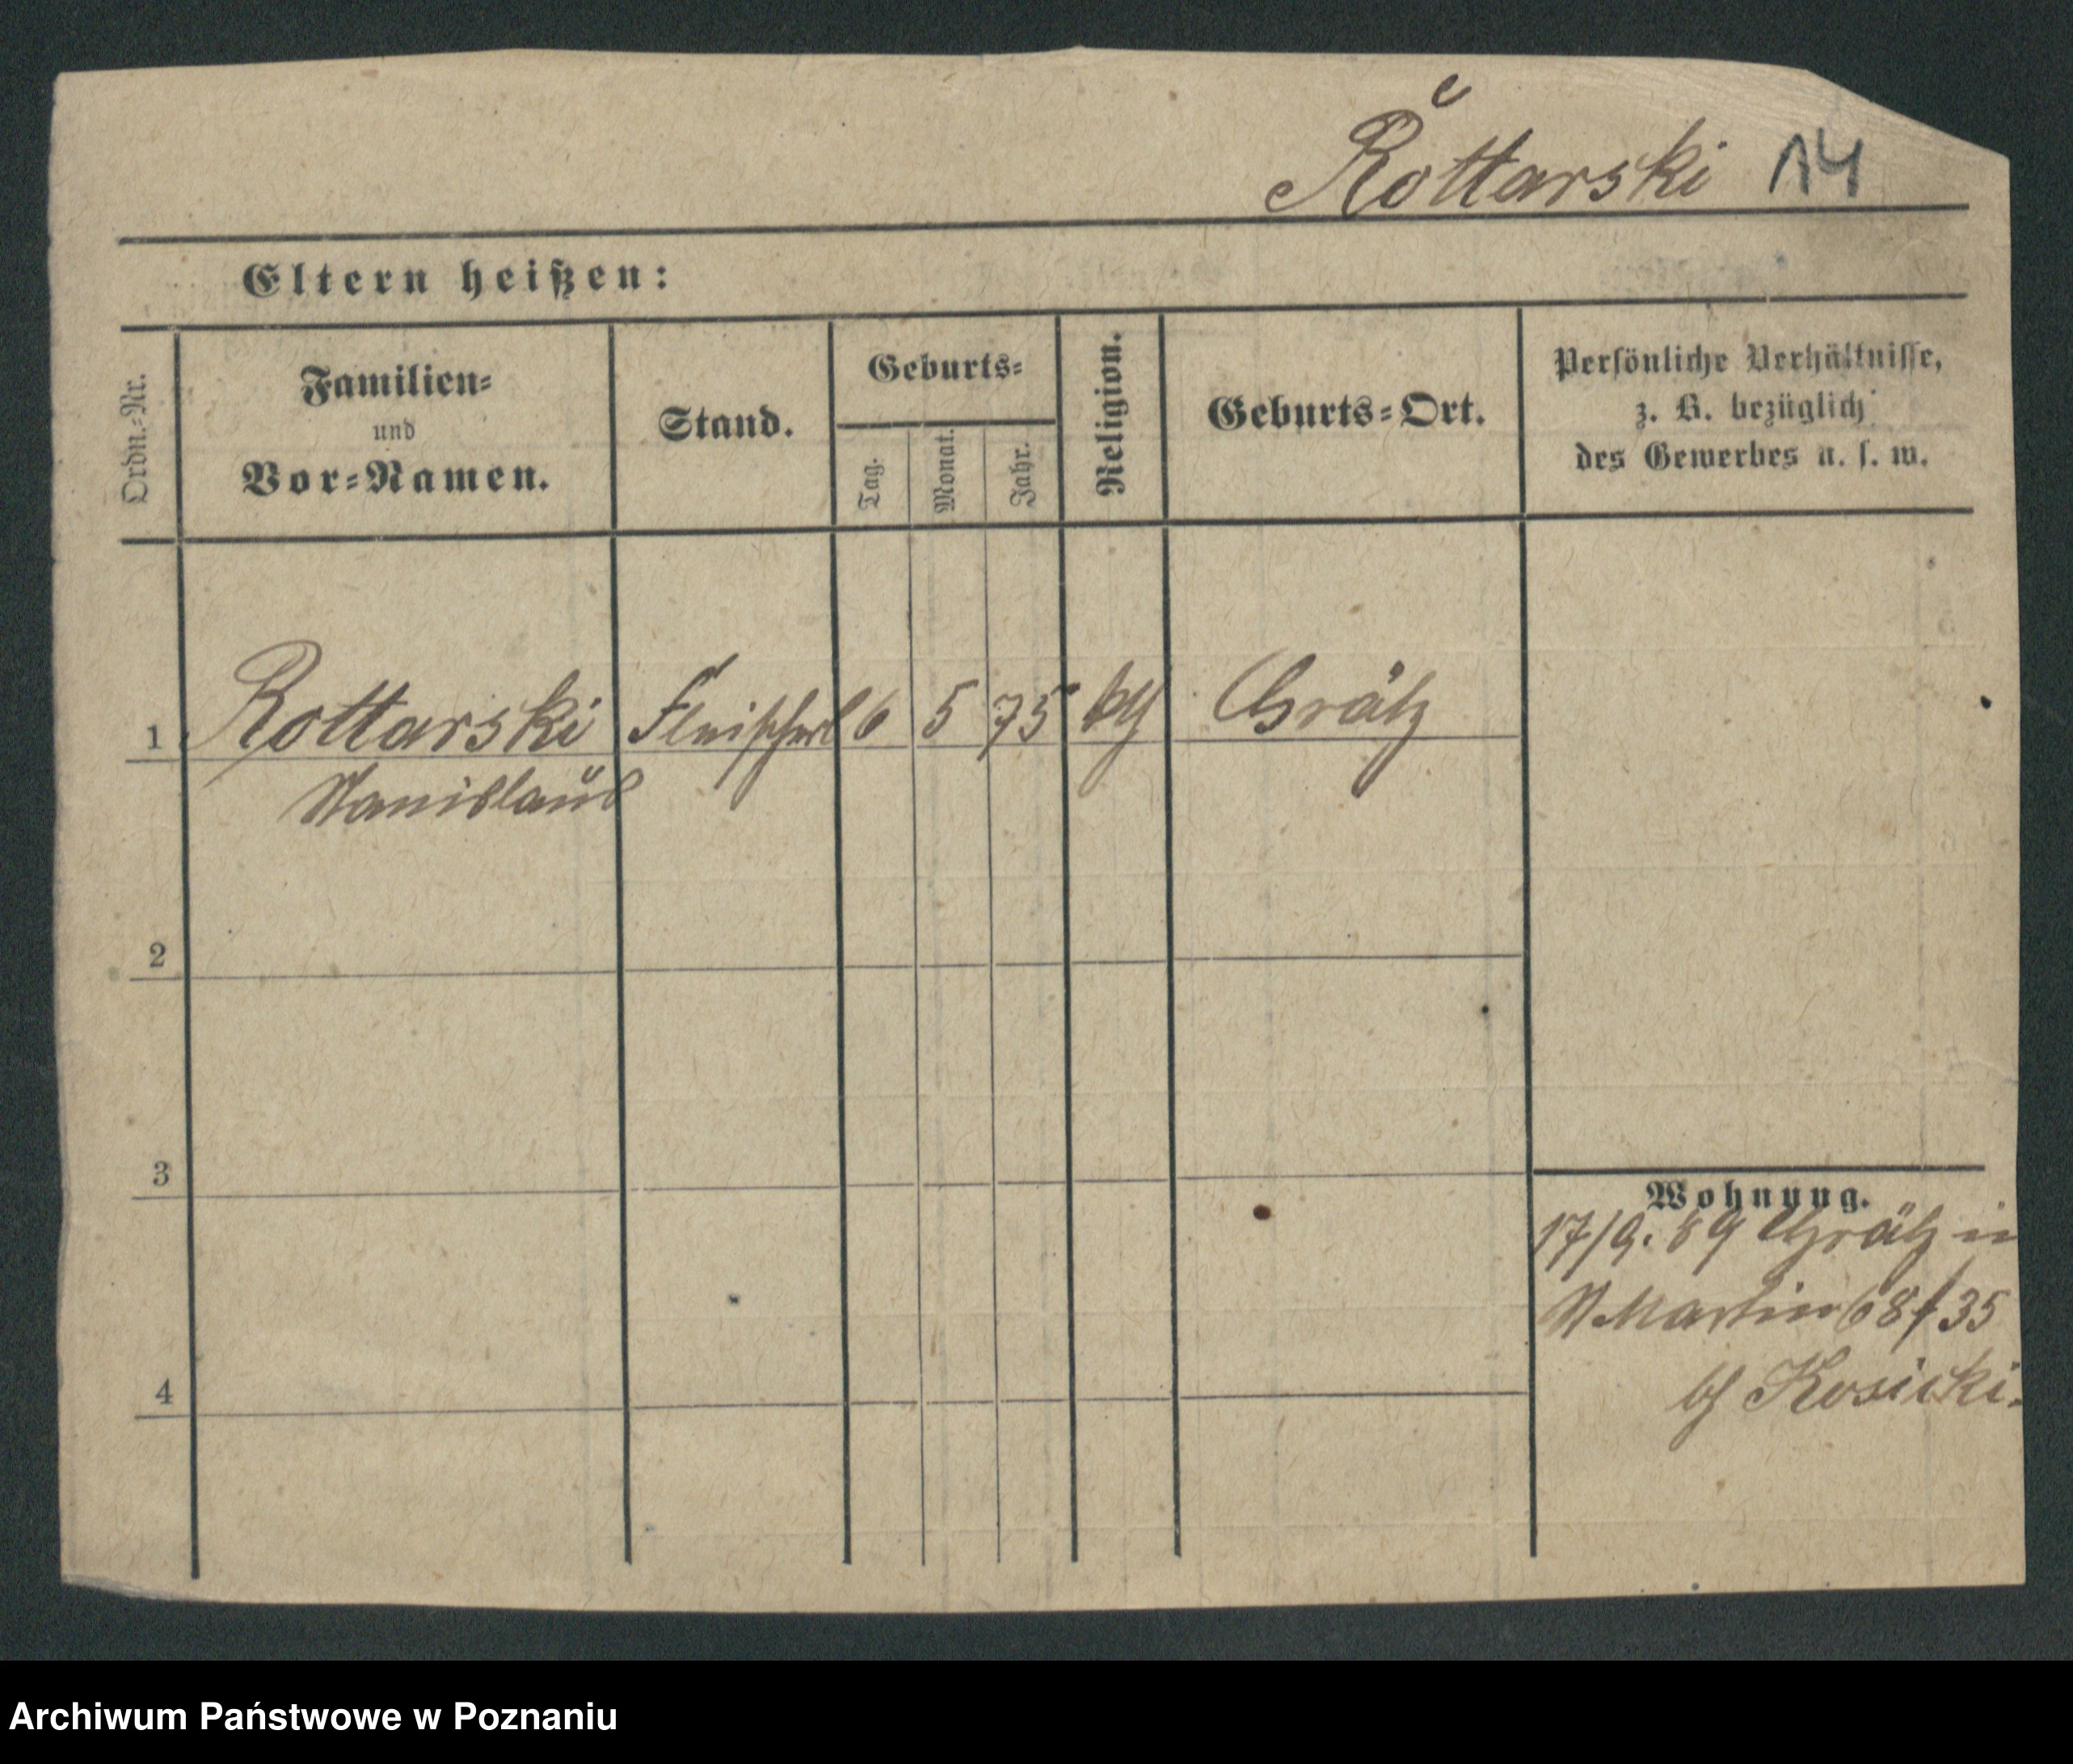 Rottarski 14
Eltern heißen:
Ordn.-Nr.
Familien-
und
Vor-Namen.
Stand.
Geburts-
Tag.
Monat.
Jahr.
Religion.
Geburts-Ort.
Persönliche Verhältnisse,
z. B. bezüglich
des Gewerbes u. s. w.
1 Rottarski Fleischerl 6 5 75 kth Grätz
Stanislaus
2
3
4
Wohnung.
17/9. 89 Grätz in
St Martin 68/35
bei Kosicki.
Archiwum Państwowe w Poznaniu